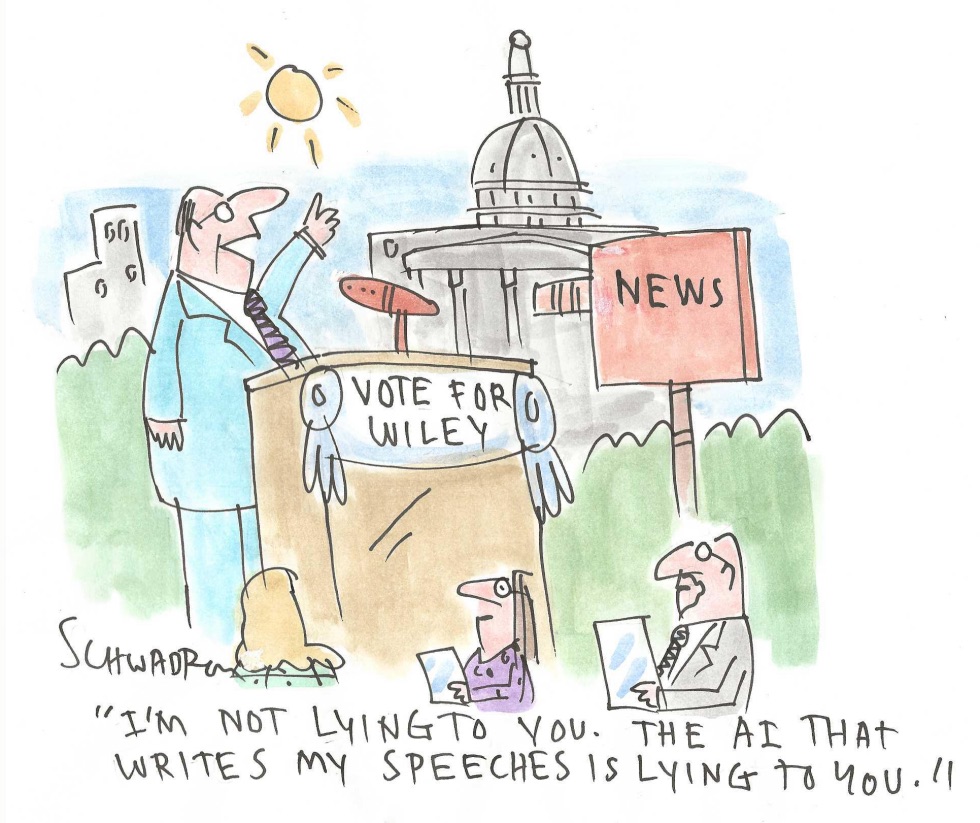 NEWS
VOTE FOR
WILEY
SCHWADRON
"I'M NOT LYING TO YOU. THE AI THAT
WRITES MY SPEECHES IS LYING TO YOU."